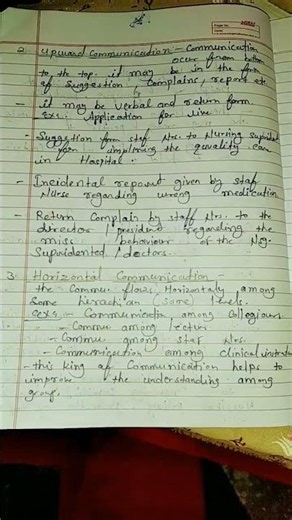 2. Upward Communication - Communication
occur from bottom
to the top. it may be in the form
of Suggestion, Complains, report etc
- it may be Verbal and return form
Ex: Application for live
- Suggestion from staf Nrs to Nursing Supridet
for implimeng the quality care
in Hospital.
- Incidental reporent given by staf
Nurse regarding wrong medication
- Return Complain by staff Nrs. to the
director / president regarding the
miss behaviour of the Nsg.
Supridented / doctors.
3. Horizental Communication -
the Commu flows Horizentaly among
Some hirachian (Some) levels.
exs - Communicatn among Collegiours
- Commu among
- Commu among staf Nrs.
- Communication among clinical
- this king of Communication helps to
improve the understanding among
group.